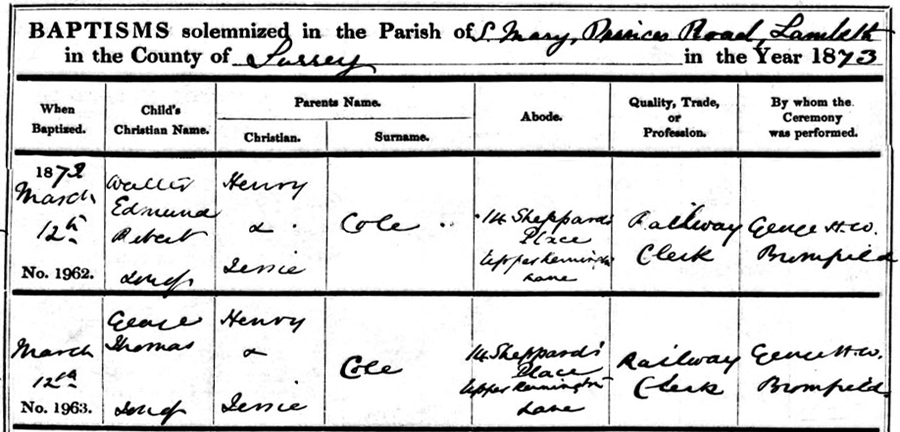 BAPTISMS solemnized in the Parish of St. Mary, Princes Road, Lambeth
in the County of Surrey in the Year 1873
When Baptized. Child's Christian Name. Parents Name. Abode. Quality, Trade, or Profession. By whom the Ceremony was performed.
Christian. Surname.
1873
March
12th
No. 1962.
Walter
Edmund
Robert
son of
Henry
&
Jessie
Cole
14 Sheppard's
Place
Upper Kennington
Lane
Railway
Clerk
George H. W.
Bromfield
March
12th
No. 1963.
George
Thomas
son of
Henry
&
Jessie
Cole
14 Sheppard's
Place
Upper Kennington
Lane
Railway
Clerk
George H. W.
Bromfield